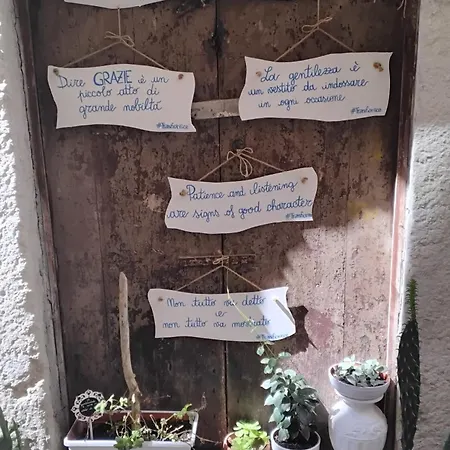 Dire GRAZIE è un
piccolo atto di
grande nobiltà
La gentilezza è
un vestito da indossare
in ogni occasione
Patience and listening
are signs of good character
Non tutto va detto
e
non tutto va mostrato